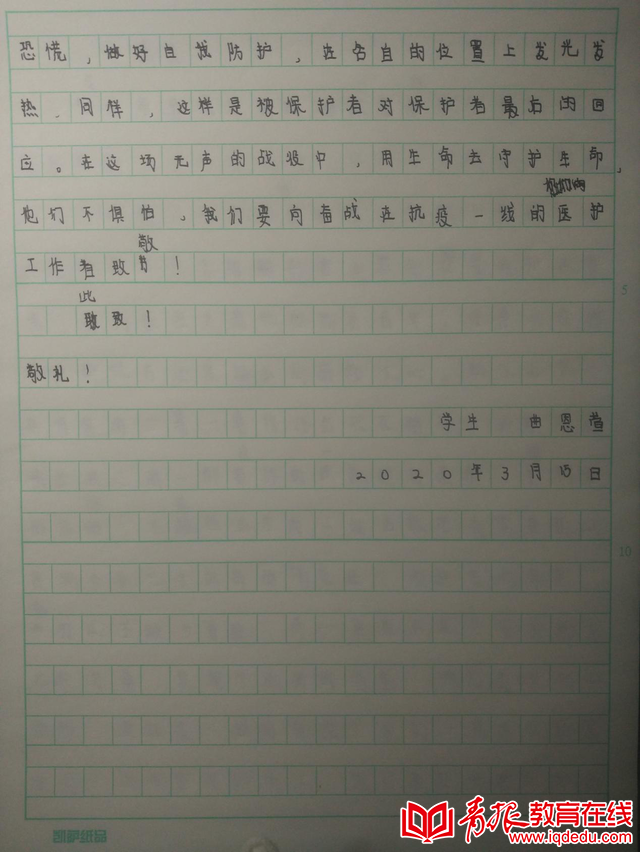 恐慌，做好自我防护，在各自的位置上发光发
热，同样，这样是被保护者对保护者最后的回
应。在这场无声的战役中，用生命去守护生命，
他们的
他们不惧怕，我们要向奋战在抗疫一线的医护
敬
工作者致！
此
致！
敬礼！
学生 曲恩萱
2020年3月15日
5
10
青报教育在线
www.iqdedu.com